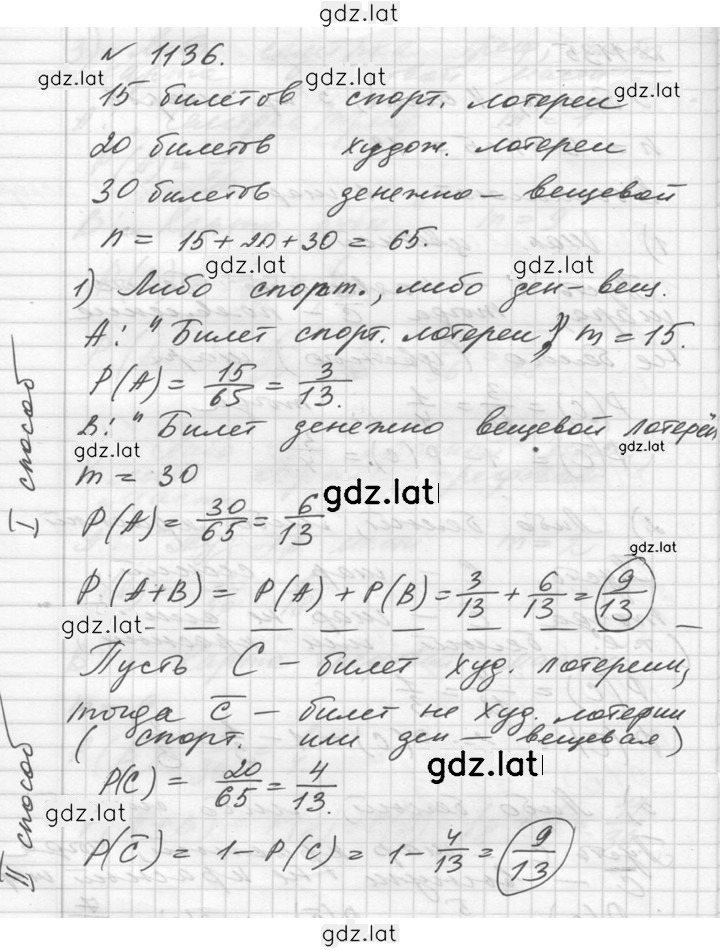 gdz.lat
№ 1136.
gdz.lat gdz.lat gdz.lat
15 билетов спорт. лотереи
20 билетов худож. лотереи
30 билетов денежно – вещевой
n = 15 + 20 + 30 = 65.
gdz.lat gdz.lat
1) Либо спорт., либо ден – вещ.
A: "Билет спорт. лотереи," m = 15.
P(A) = 15/65 = 3/13.
B: "Билет денежно вещевой лотереи
gdz.lat gdz.lat
m = 30
gdz.lat
P(A) = 30/65 = 6/13
gdz.lat
P(A+B) = P(A) + P(B) = 3/13 + 6/13 = 9/13
gdz.lat
I способ
Пусть C – билет худ. лотереии,
gdz.lat gdz.lat
тогда C̅ – билет не худ. лотерии
( спорт. или ден – вещевая)
gdz.lat
P(C) = 20/65 = 4/13.
gdz.lat
P(C̅) = 1 – P(C) = 1 – 4/13 = 9/13
II способ
gdz.lat